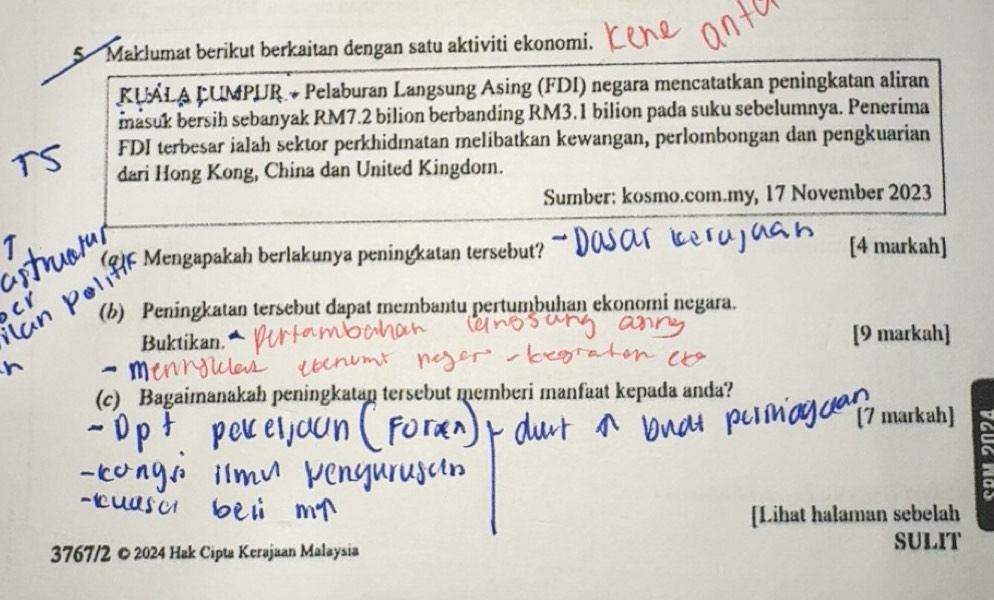 5 Maklumat berikut berkaitan dengan satu aktiviti ekonomi. Kene
KUALA LUMPUR - Pelaburan Langsung Asing (FDI) negara mencatatkan peningkatan aliran
masuk bersih sebanyak RM7.2 bilion berbanding RM3.1 bilion pada suku sebelumnya. Penerima
FDI terbesar ialah sektor perkhidmatan melibatkan kewangan, perlombongan dan pengkuarian
dari Hong Kong, China dan United Kingdom.
Sumber: kosmo.com.my, 17 November 2023
TS
(a) Mengapakah berlakunya peningkatan tersebut? - Dasar kerajaan [4 markah]
politik
(b) Peningkatan tersebut dapat membantu pertumbuhan ekonomi negara.
Buktikan. - Pertambahan langsung asing [9 markah]
(c) Bagaimanakah peningkatan tersebut memberi manfaat kepada anda?
[7 markah]
- Dpt pekerjaan - duit ↑ buat perniagaan
- kongsi ilmu pengurusan
- kuasa beli
[Lihat halaman sebelah
SULIT
3767/2 © 2024 Hak Cipta Kerajaan Malaysia
SPM 2024